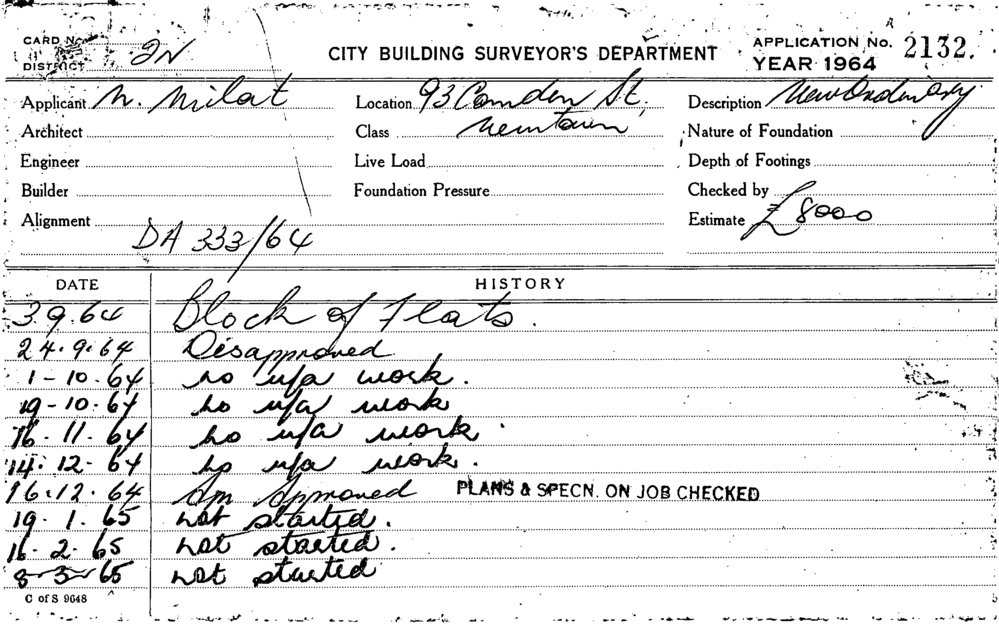 CARD No.
DISTRICT 2N
CITY BUILDING SURVEYOR'S DEPARTMENT
APPLICATION No. 2132.
YEAR 1964
Applicant N. Milat
Location 93 Camden St.
Description New Ordinary
Architect
Class Newtown
Nature of Foundation
Engineer
Live Load
Depth of Footings
Builder
Foundation Pressure
Checked by
Alignment
Estimate £8000
DA 333/64
DATE HISTORY
3.9.64 Block of Flats.
24.9.64 Disapproved
1-10.64 no u/a work.
19-10.64 no u/a work
16.11.64 no u/a work.
14.12.64 no u/a work.
16.12.64 Approved PLANS & SPECN. ON JOB CHECKED
19.1.65 not started.
16.2.65 not started.
8-3-65 not started
C of S 9648